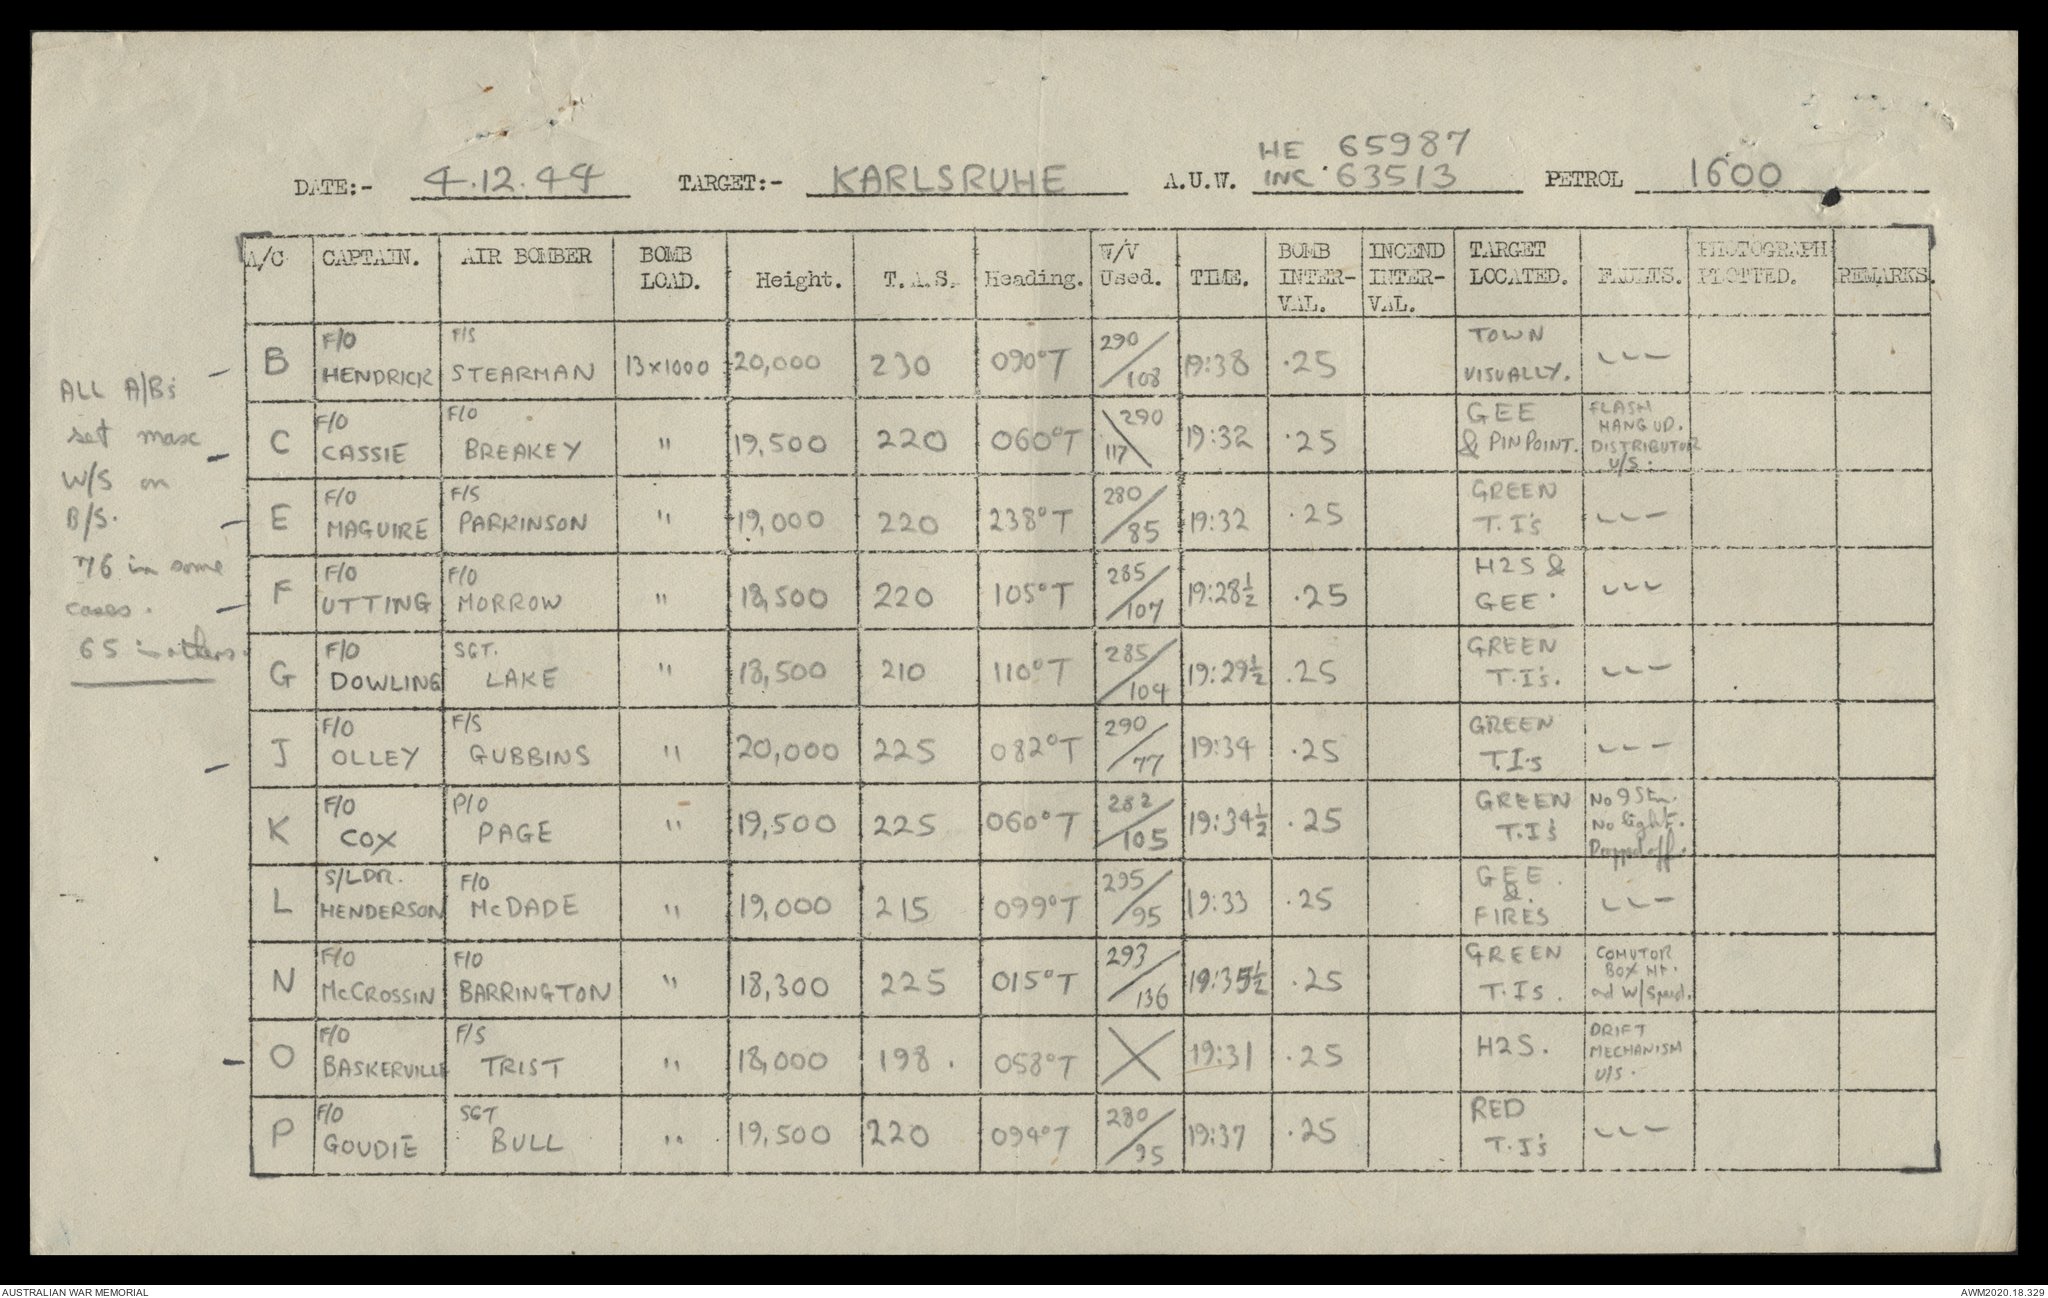 HE 65987
DATE:- 4.12.44 TARGET:- KARLSRUHE A.U.W. INC 63513 PETROL 1600
A/C CAPTAIN. AIR BOMBER BOMB LOAD. Height. T.A.S. Heading. W/V Used. TIME. BOMB INTER-VAL. INCEND INTER-VAL. TARGET LOCATED. FAULTS. PHOTOGRAPH PLOTTED. REMARKS.
B F/O HENDRICK F/S STEARMAN 13x1000 20,000 230 090°T 290/108 19:38 .25 TOWN VISUALLY. ~~~
C F/O CASSIE F/O BREAKEY " 19,500 220 060°T 290\117 19:32 .25 GEE & PINPOINT. FLASH HANG UP. DISTRIBUTOR U/S.
E F/O MAGUIRE F/S PARKINSON " 19,000 220 238°T 280/85 19:32 .25 GREEN T.I's ~~~
F F/O UTTING F/O MORROW " 18,500 220 105°T 285/107 19:28½ .25 H2S & GEE ~~~
G F/O DOWLING SGT. LAKE " 18,500 210 110°T 285/104 19:29½ .25 GREEN T.I's. ~~~
J F/O OLLEY F/S GUBBINS " 20,000 225 082°T 290/77 19:34 .25 GREEN T.I.s ~~~
K F/O COX P/O PAGE " 19,500 225 060°T 282/105 19:34½ .25 GREEN T.I's No 9 Stn. No light. Dropped off.
L S/LDR. HENDERSON F/O McDADE " 19,000 215 099°T 295/95 19:33 .25 GEE. & FIRES ~~~
N F/O McCROSSIN F/O BARRINGTON " 18,300 225 015°T 293/136 19:35½ .25 GREEN T.Is. COMUTOR BOX Ht. and W/Speed.
O F/O BASKERVILLE F/S TRIST " 18,000 198. 058°T X 19:31 .25 H2S. DRIFT MECHANISM U/S.
P F/O GOUDIE SGT BULL " 19,500 220 094°T 280/95 19:37 .25 RED T.I's ~~~
ALL A/B's
set max
W/S on
B/S.
76 in some
cases.
65 in others.
AUSTRALIAN WAR MEMORIAL
AWM2020.18.329